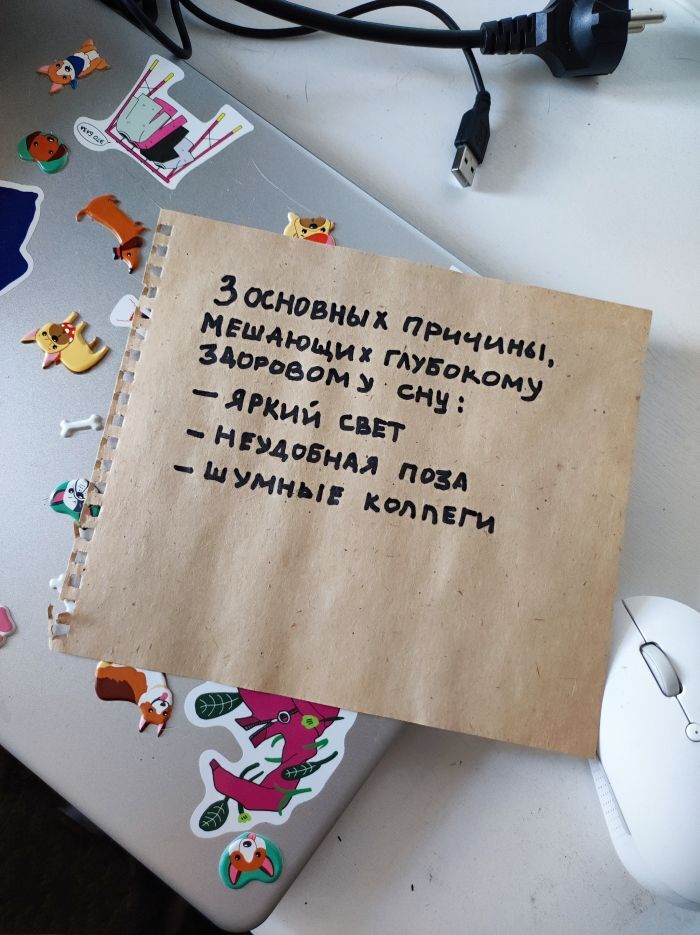 3 ОСНОВНЫХ ПРИЧИНЫ,
МЕШАЮЩИХ ГЛУБОКОМУ
ЗДОРОВОМУ СНУ:
– ЯРКИЙ СВЕТ
– НЕУДОБНАЯ ПОЗА
– ШУМНЫЕ КОЛЛЕГИ